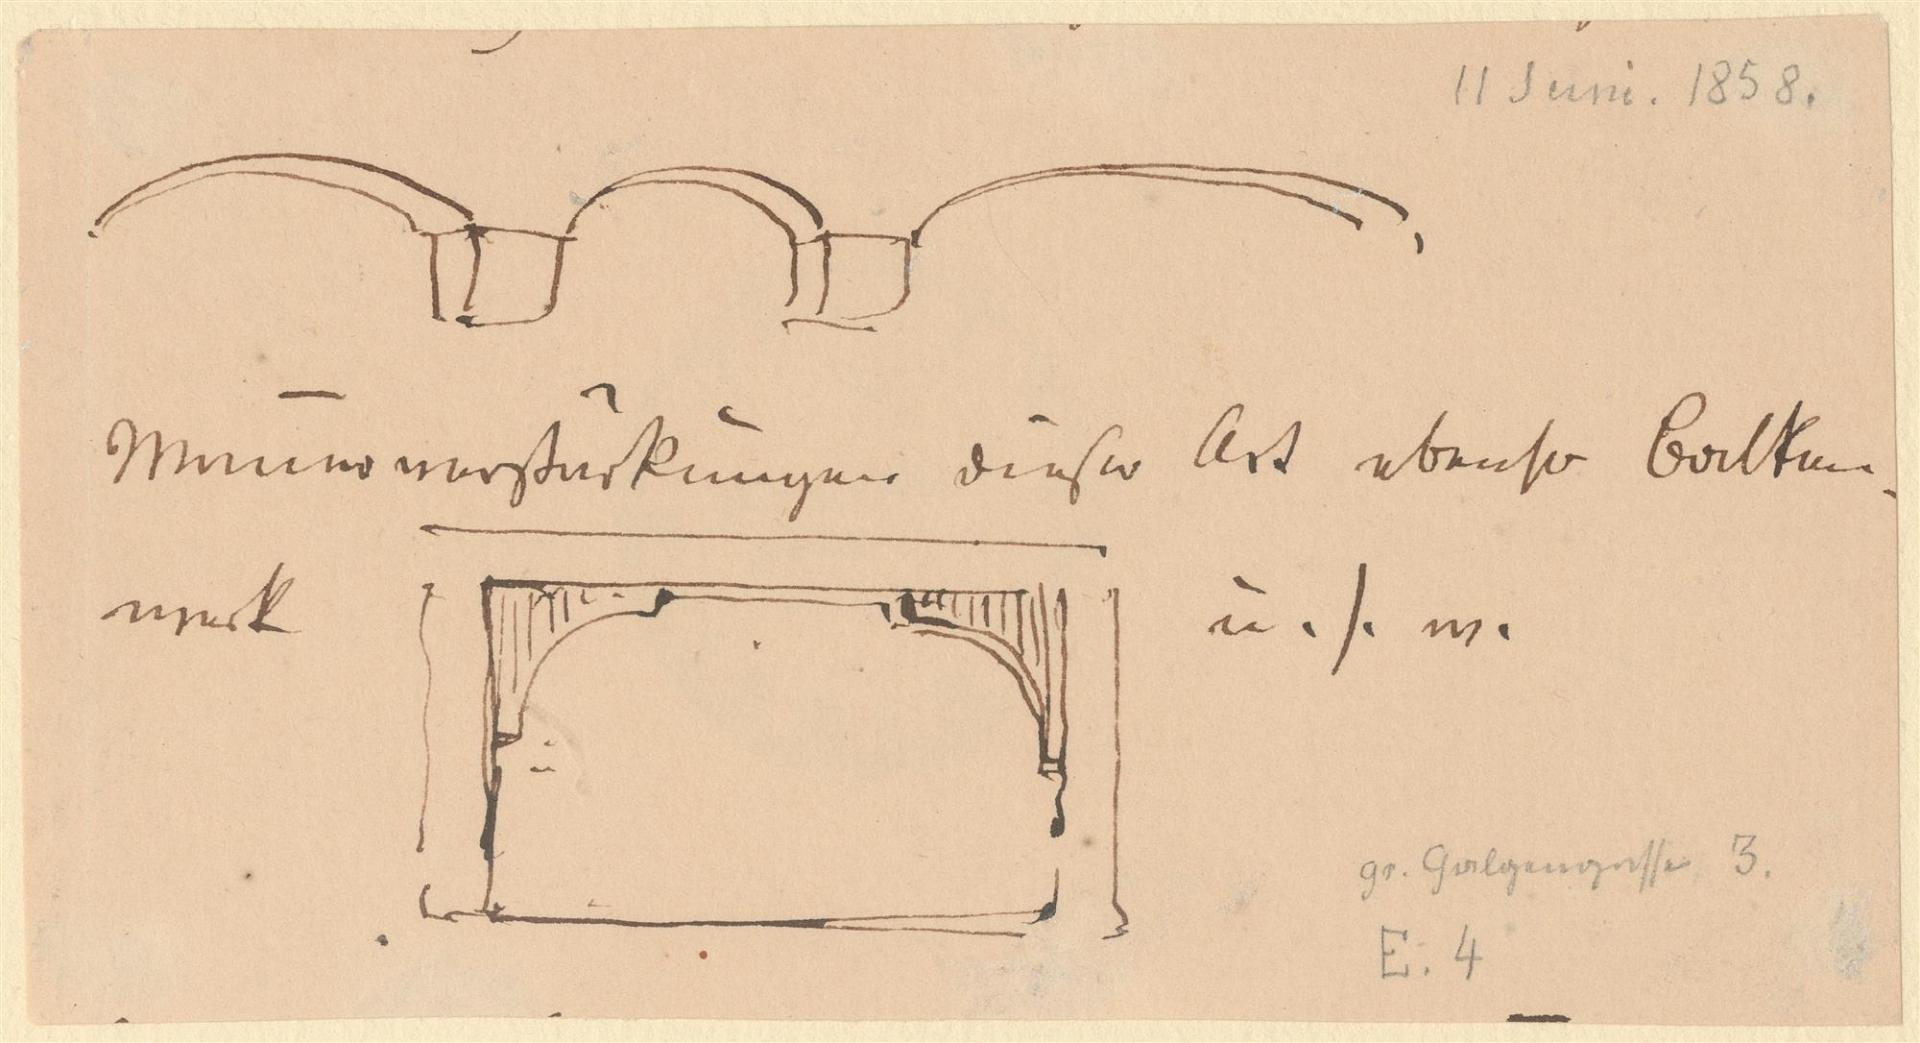 11 Juni. 1858.
Mauerverstärkungen dieser Art ebenso Balken-
werk u. s. w.
gr. Galgengasse 3.
E. 4